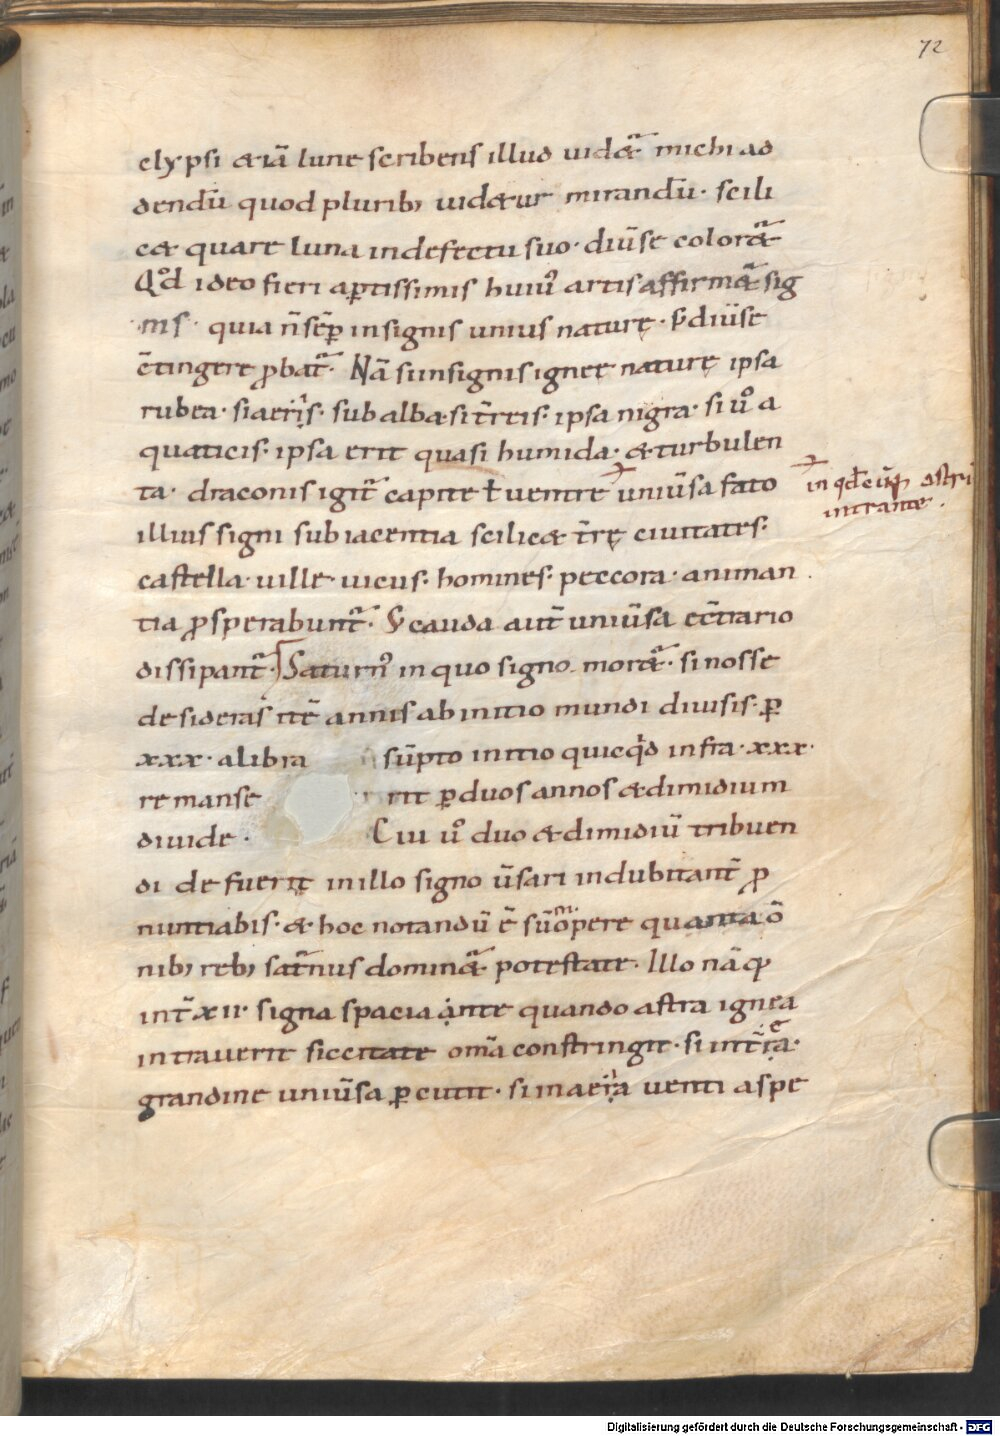 72
elypsi &iā lune scribens illud uid&ᷓ michi ad
dendū quod pluribꝫ uid&ur mirandū· scili
c& quare luna indefectu suo· diūse color&ᷓ
Qd̊ ideo fieri aptissimis huiꝰ artis affirm&ᷓ sig
nis· quia n̄ sēꝑ insignis unius naturę· s; diūse
c̄tingere ꝓbat᷑· Nā si insignis igneę naturę ipsa
rubea· si aeriis· subalba· si t̄reis· ipsa nigra· si ů a
quaticis· ipsa erit quasi humida· & turbulen
ta· draconis igit᷑ capite ł uentre uniūsa fato
in qd̄cūqꝫ astri
intrante·
illius signi subiacentia scilic& t̄rę ciuitates·
castella· uille· uicus· homines· peccora· animan
tia ꝓsperabunt᷑· S; cauda aut̄ uniūsa ec̄trario
dissipant᷑· Saturnꝰ in quo signo mor&ᷓ· si nosse
desideras itē annis ab initio mundi diuisis· ꝑ
xxx· a libra sūpto initio quicq̇d infra· xxx·
remanse rit ꝑ duos annos & dimidium
diuide· Cui ů duo & dimidiū tribuen
di defuerit in illo signo ūsari indubitant̄ ꝓ
nuntiabis· & hoc notandū ē sūmopere quanta ō
nibꝫ rebꝫ sat̄nus domin&ᷓ potestate· Illo nāqꝫ
int̄ xii· signa spacia ante quando astra ignea
intrauerit siccitate om̄a constringit· si int̄rea·
grandine uniūsa ꝑcutit· si in aeria uenti aspe
Digitalisierung gefördert durch die Deutsche Forschungsgemeinschaft - DFG